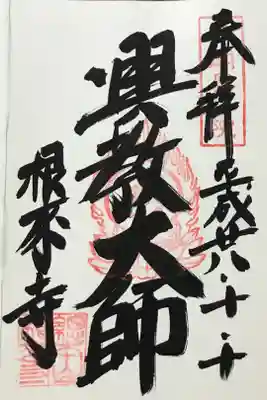 奉拝 平成廿八・十・十
興教大師
根来寺